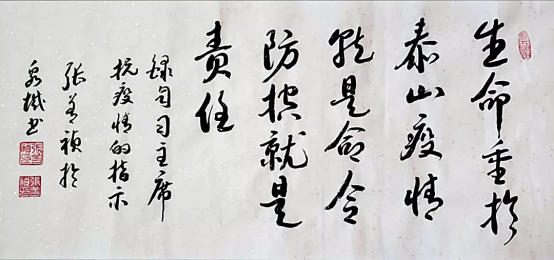 生命重於
泰山疫情
就是命令
防控就是
责任
録自习主席
抗疫情的指示
张善祯於
泉城书